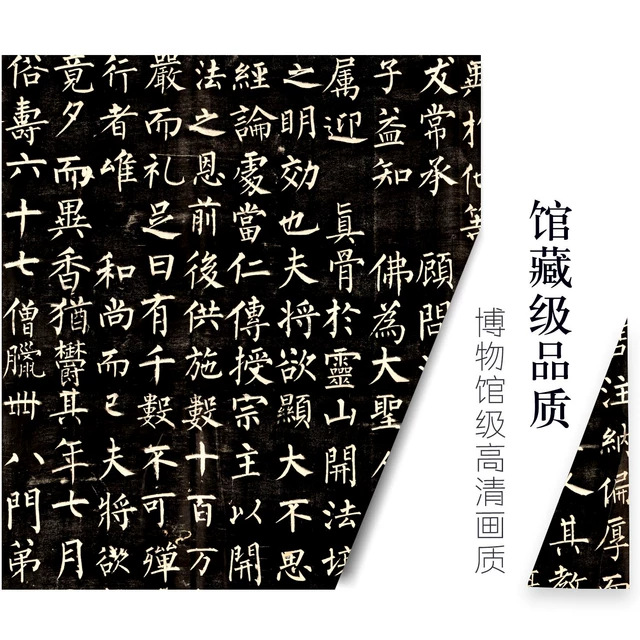 馆藏级品质
博物馆级高清画质
注納偏厚而
其教
異於他等
友常承 顧問
子益知 佛為大聖
属迎 真骨於靈山開法場
之明効也夫將欲顯大不思
經論處當仁傳授宗主以開
法之恩前後供施數十百万
嚴而礼足日有千數不可殫
行者唯 和尚而已夫將欲
竟夕而異香猶鬱其年七月
俗壽六十七僧臘卌八門弟